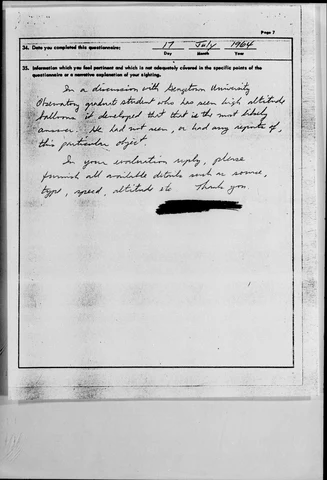 Page 7
34. Date you completed this questionnaire: 17 July 1964
Day Month Year
35. Information which you feel pertinent and which is not adequately covered in the specific points of the
questionnaire or a narrative explanation of your sighting.
In a discussion with Georgetown University
Observatory graduate student who has seen high altitude
balloons it developed that that is the most likely
answer. He had not seen, or had any reports of,
this particular object.
In your evaluation reply, please
furnish all available details such as source,
type, speed, altitude etc Thank you.